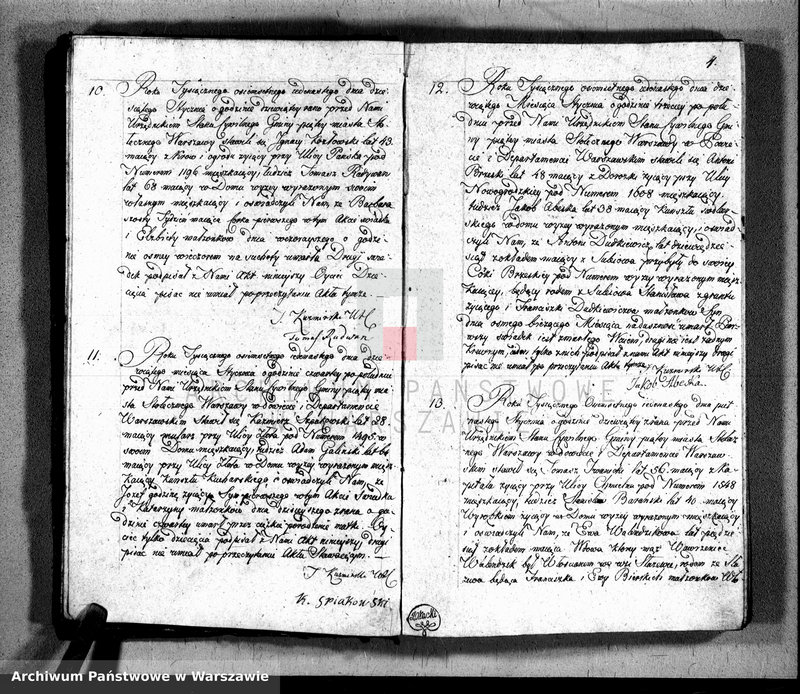 10. Roku Tysiącznego ośmsetnego iedenastego dnia dzie-
siątego Stycznia o godzinie dziewiątey rano przed Nami
Urzędnikiem Stanu Cywilnego Gminy piątey miasta Sto-
łecznego Warszawy stawili się Ignacy Kozłowski lat 43
maiący z Krow i ogrodu żyiący przy Ulicy Pańska pod
Numerem 1196 mieszkaiący, tudzież Tomasz Radywan
lat 68 maiący w Domu wyżey wyrażonym swoim
własnym mieszkaiący i oświadczyli Nam, że Barbara
Tydzień maiąca Córka pierwszego w tym Akcie świadka
i Elżbiety małżonków dnia wczorayszego o godzi-
nie osmey wieczorem na suchoty umarła Drugi świa-
dek podpisał z Nami Akt ninieyszy Oyciec Dzie-
cięcia pisać nie umiał po przeczytaniu Aktu tymże.
J Kuzmirski USC
11. Roku Tysiącznego ośmsetnego iedenastego dnia dzie-
wiątego miesiąca Stycznia o godzinie czwartey po południu
przed Nami Urzędnikiem Stanu Cywilnego Gminy piątey mia-
sta Stołecznego Warszawy w Powiecie i Departamencie
Warszawskim Stawił się Kazimierz Szpakowski lat 28
maiący mularz przy Ulicy Złota pod Numerem 1495 w
swoim Domu mieszkaiący, tudzież Adam Galiński lat 64
maiący przy Ulicy Złota w Domu wyżey wyrażonym miesz-
kaiący i oświadczyli Nam, że
Józef godzinę żyiący Syn pierwszego w tym Akcie Świadka
i Katarzyny małżonków dnia dzisieyszego zrana o go-
dzinie czwartey umarł przez ciężkie porodzenie matki. Oy-
ciec tylko dziecięcia podpisał z Nami Akt ninieyszy, drugi
pisać nie umiał po przeczytaniu Aktu Stawaiącym.
J Kuzmirski USC
K. Spiakowski
4.
12. Roku Tysiącznego ośmsetnego iedenastego dnia dzie-
wiątego Miesiąca Stycznia o godzinie trzeciey po połu-
dniu przed Nami Urzędnikiem Stanu Cywilnego Gmi-
ny piątey miasta Stołecznego Warszawy w Powie-
cie i Departamencie Warszawskim stawili się Antoni
lat 48 maiący z Dorożki żyiący przy Ulicy
Nowogrodzkiey pod Numerem 1608 mieszkaiący,
tudzież Jakob Abeska lat 38 maiący Kunsztu
w domu wyżey wyrażonym mieszkaiący, i oświad-
czyli Nam, że Antoni Dudkiewicz lat dziewiędzie-
siąt z okładem maiący z przybyły do swoiey
Córki pod Numerem wyżey wyrażonym miesz-
kaiącey, będący rodem z Stanisława z gruntu
żyiącego i Franciszki Dudkiewiczow małżonków Syn
dnia osmego bieżącego Miesiąca umarł Pier-
wszy świadek iest zmarłego Zięciem, drugi nie iest żadnym
krewnym, ten tylko z nich podpisał z nami Akt ninieyszy drugi
pisać nie umiał po przeczytaniu Aktu tymże.
Kuzmirski USC
Jakob Abeska
13. Roku Tysiącznego Ośmsetnego iedenastego dnia pięt-
nastego Stycznia o godzinie dziewiątey zrana przed Nami
Urzędnikiem Stanu Cywilnego Gminy piątey miasta Stołecz-
nego Warszawy w Powiecie i Departamencie Warszaw-
skim stawił się Tomasz Iwanski lat 56 maiący z Ka-
pitału żyiący przy Ulicy Chmielna pod Numerem 1548
mieszkaiący, tudzież Stanisław Barański lat 40 maiący
Wyrobkiem żyiący w Domu wyżey wyrażonym mieszkaiący
i oświadczyli Nam, że Ewa Walendzikowa lat pięćdzie-
siąt z okładem maiąca Wdowa którey mąż Wawrzeniec
Walendzik był Włościanem we wsi rodem ze
będąca Franciszka i Ewy małżonków
Malecki
ARCHIWUM PAŃSTWOWE
W WARSZAWIE
Archiwum Państwowe w Warszawie